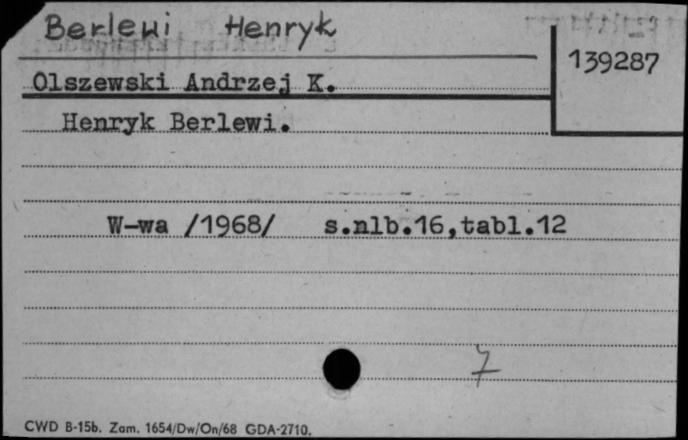 Berlewi Henryk
139287
Olszewski Andrzej K.
Henryk Berlewi.
W-wa /1968/ s.nlb.16,tabl.12
7
CWD B-15b. Zam. 1654/Dw/On/68 GDA-2710.